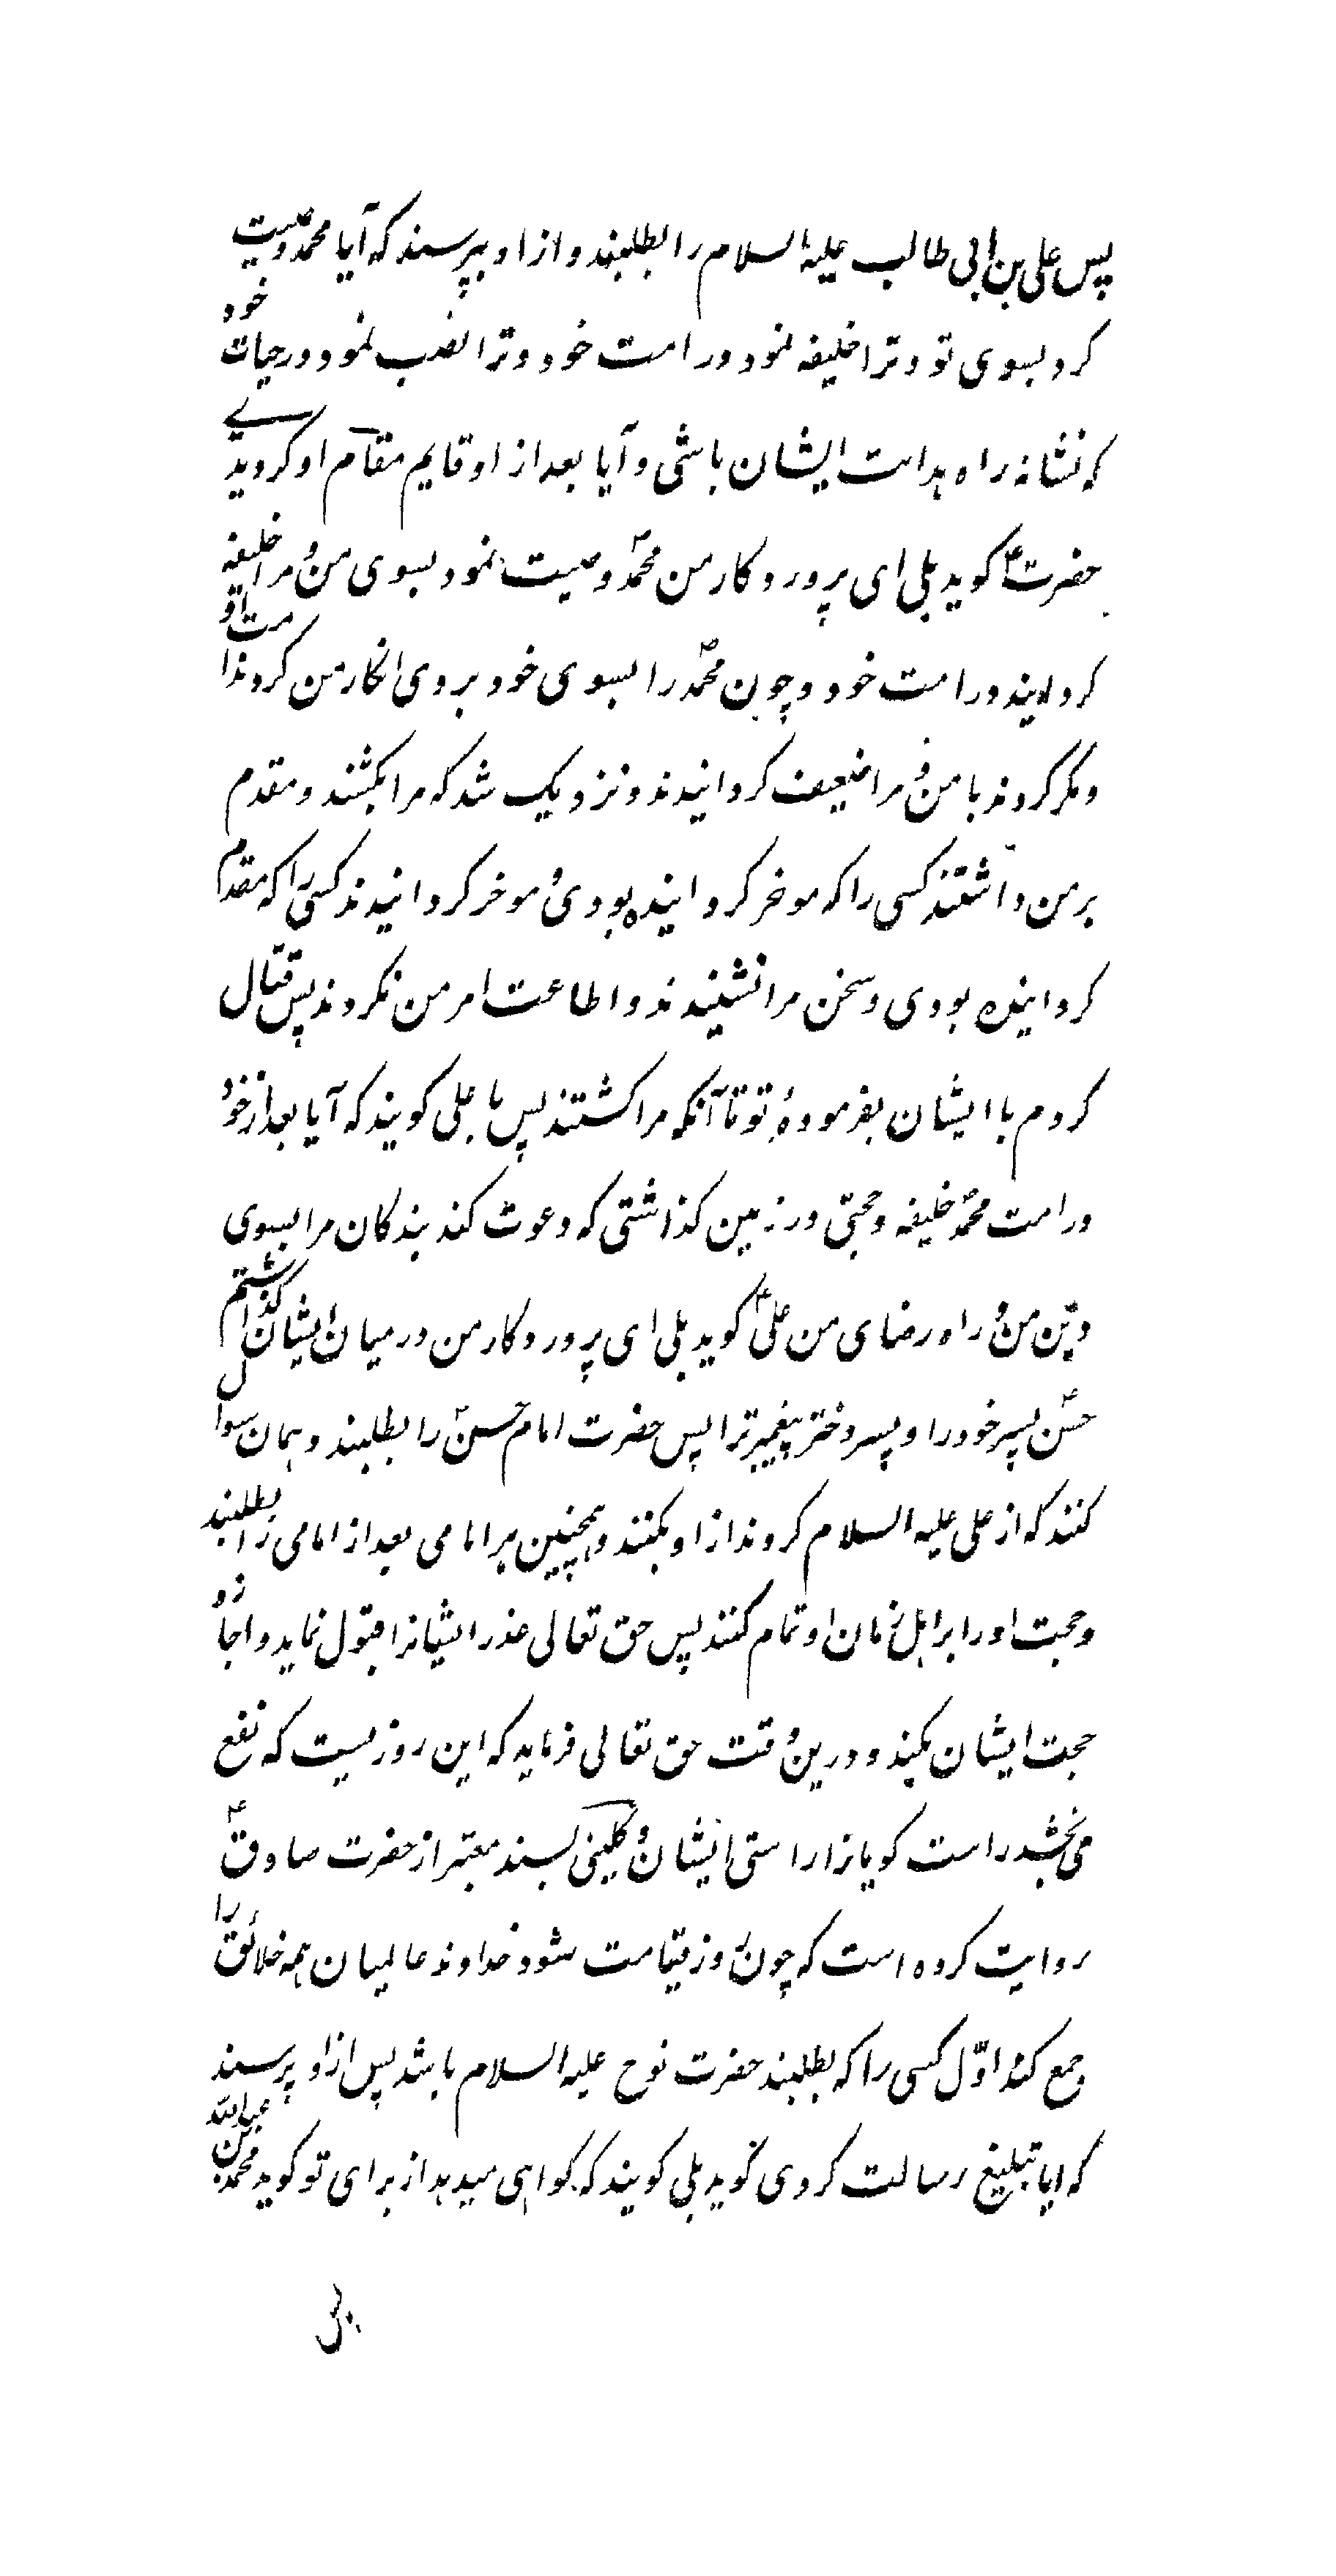 پس علی بن ابی طالب علیه السلام را بطلبند و از او بپرسند که آیا محمد وصیت
کرد بسوی تو و ترا خلیفه نمود در امت خود و ترا نصب نمود در حیات خود
که نشانه راه هدایت ایشان باشی و آیا بعد از او قایم مقام او کردیدی
حضرت ع کوید بلی ای پروردکار من محمد ص وصیت نمود بسوی من و مرا خلیفه
کردانید در امت خود و چون محمد ص را بسوی خود بردی انکار من کردند امت او
و مکر کردند با من و مرا ضعیف کردانیدند و نزدیک شد که مرا بکشند و مقدم
بر من داشتند کسی را که موخر کردانیده بودی و موخر کردانیدند کسی را که مقدم
کردانیده بودی و سخن مرا نشنیدند و اطاعت امر من نکردند پس قتال
کردم با ایشان بفرمودهٔ تو تا آنکه مرا کشتند پس با علی کویند که آیا بعد از خود
در امت محمد ص خلیفه و حجتی در زمین کذاشتی که دعوت کند بندکان مرا بسوی
دین من و راه رضای من علی ع کوید بلی ای پروردکار من در میان ایشان کذاشتم
حسن ع پسر خود را و پسر دختر پیغمبر ترا پس حضرت امام حسن ع را بطلبند و همان سوال
کنند که از علی علیه السلام کردند از او بکنند و همچنین هر امامی بعد از امامی را بطلبند
و حجت او را بر اهل زمان او تمام کنند پس حق تعالی عذر ایشانرا قبول نماید و اجازه
حجت ایشان بکند و درین وقت حق تعالی فرماید که این روزیست که نفع
می بخشد راست کویانرا راستی ایشان و کلینی بسند معتبر از حضرت صادق ع
روایت کرده است که چون روز قیامت شود خداوند عالمیان همه خلائق را
جمع کند اوّل کسی را که بطلبند حضرت نوح علیه السلام باشد پس از او پرسند
که ایا تبلیغ رسالت کردی کوید بلی کویند که کواهی میدهد از برای تو کوید محمد بن عبدالله